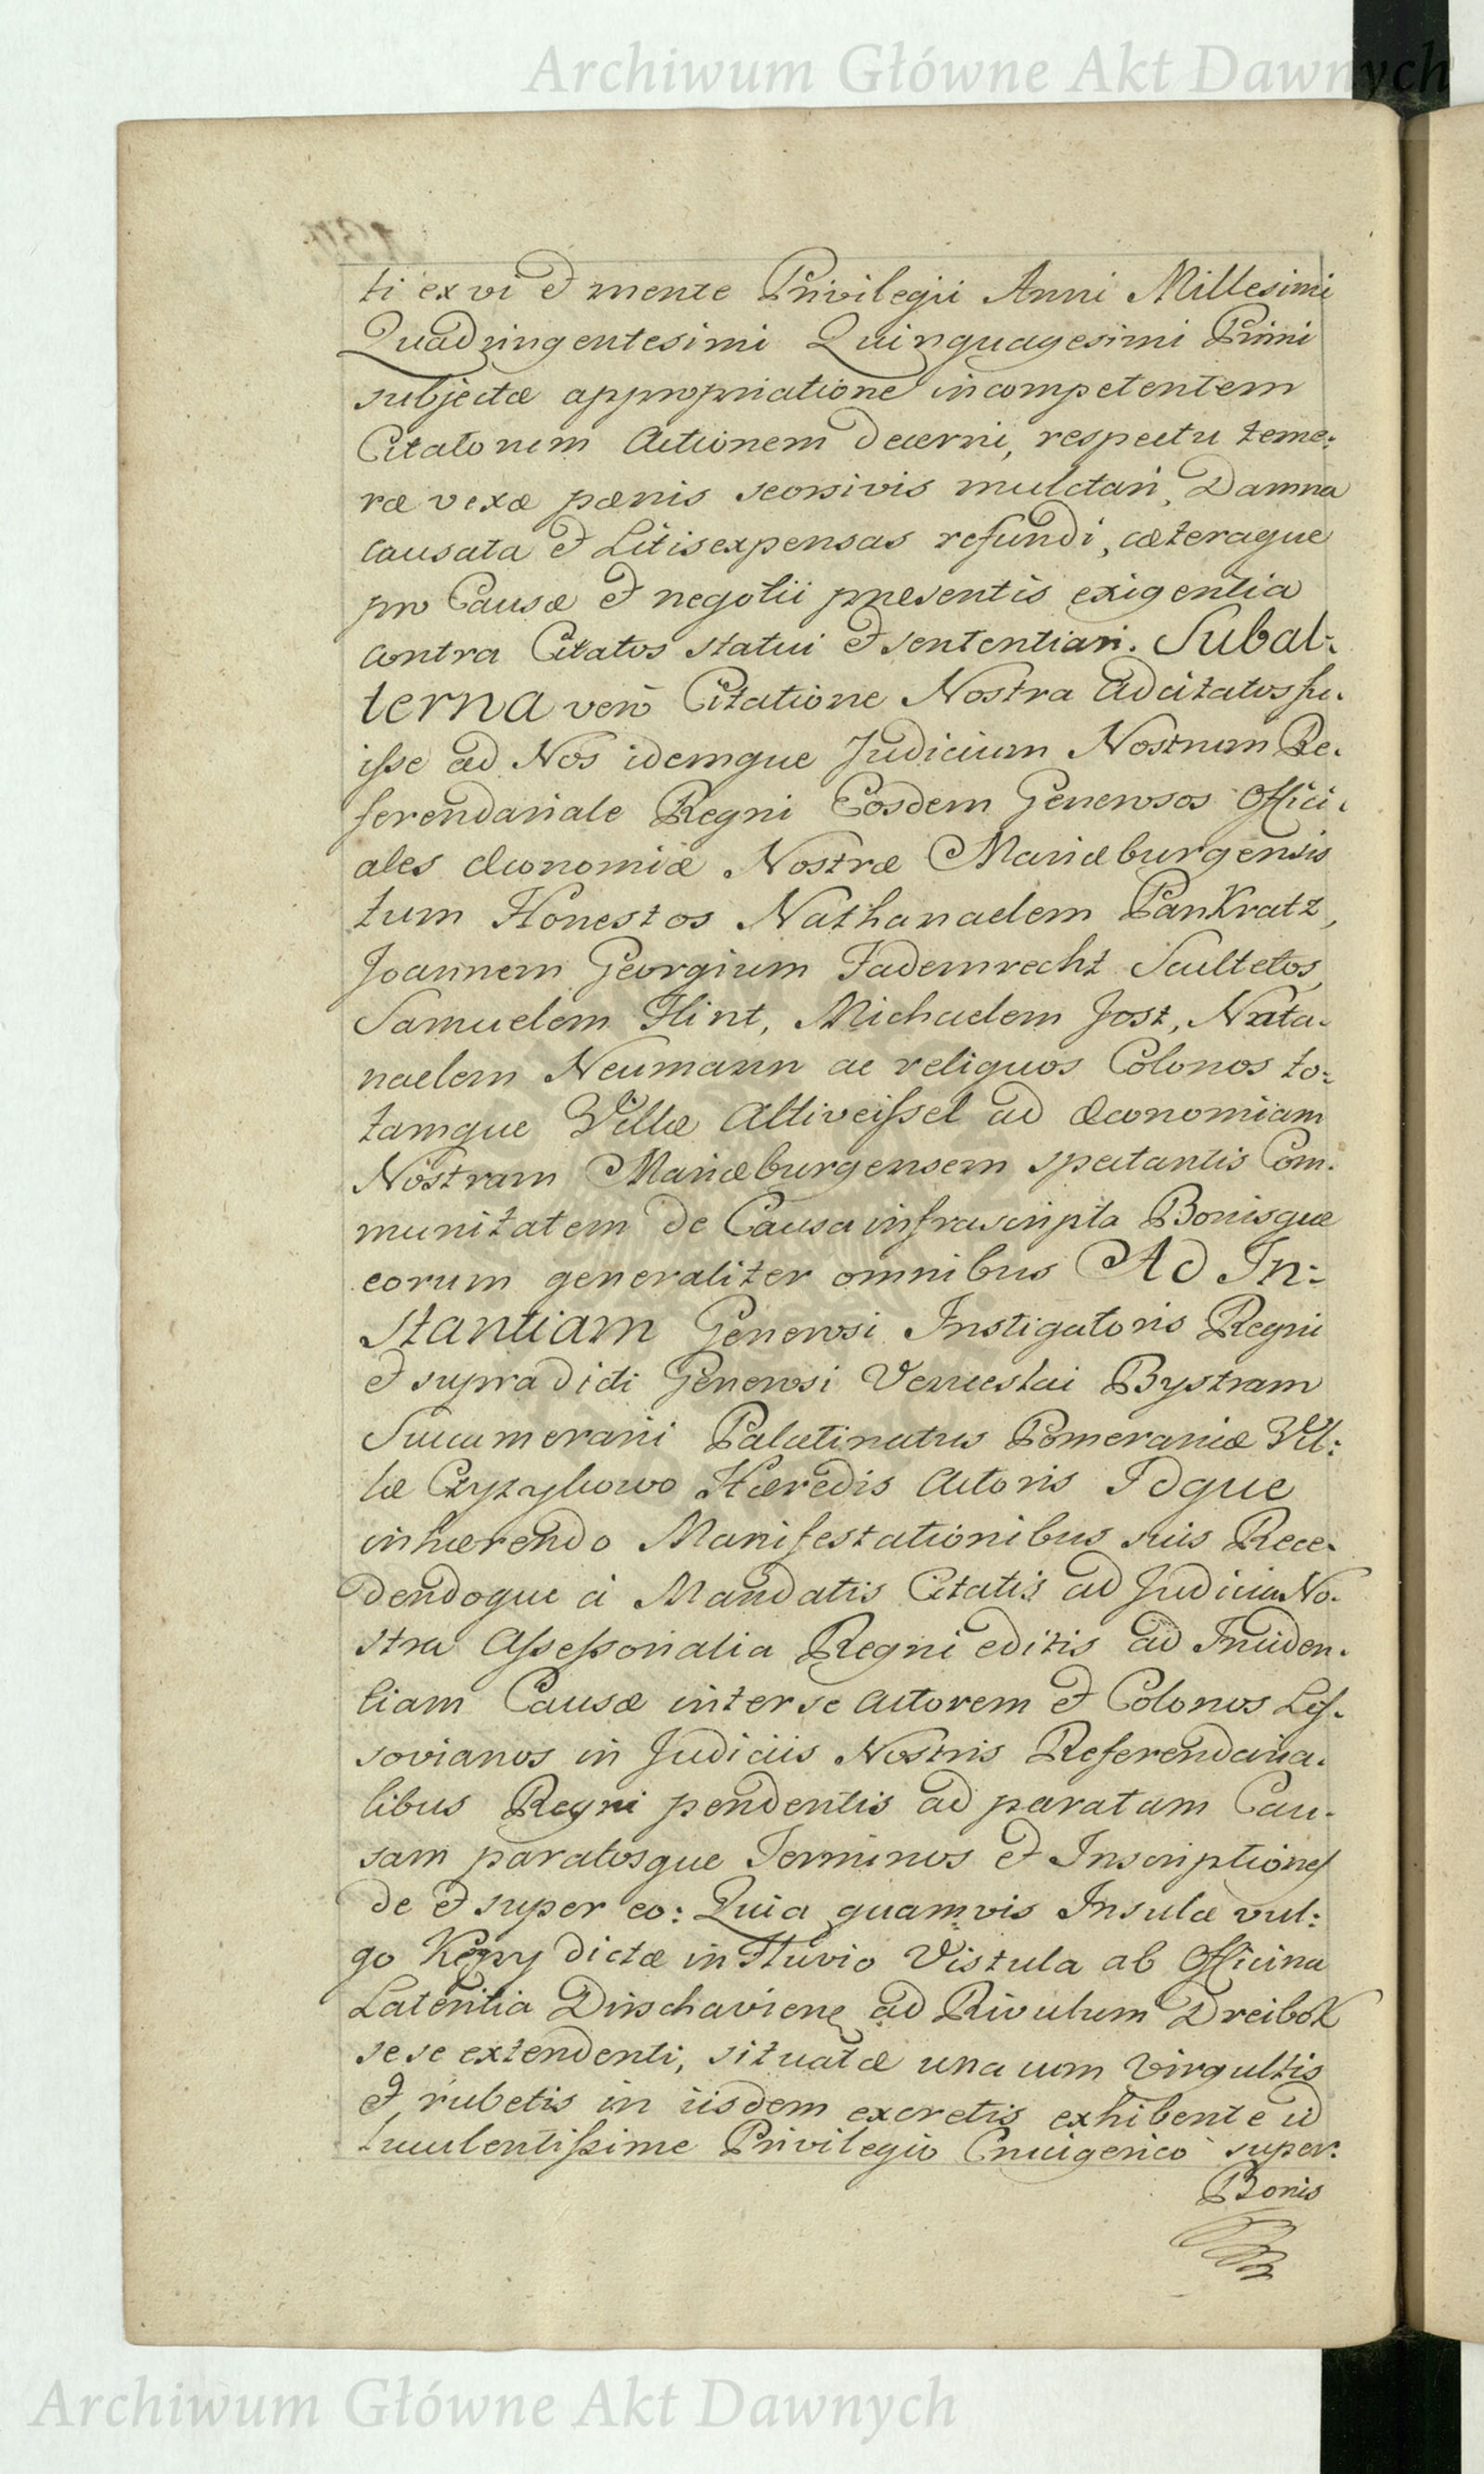 Archiwum Główne Akt Dawnych
ti ex vi et mente Privilegii Anni Millesimi
Quadringentesimi Quinquagesimi Primi
subjectæ appropriatione incompetentem
Citatorum Actionem decerni, respectu teme:
ræ vexæ pœnis seorsivis mulctari, Damna
causata et Litisexpensas refundi, cæteraque
pro Causæ et negotii præsentis exigentia
contra Citatos statui et sententiari. Subal:
terna verò Citatione Nostra Adcitatos fu.
isse ad Nos idemque Judicium Nostrum Re.
ferendariale Regni Eosdem Generosos Offici.
ales Œconomiæ Nostræ Mariæburgensis
tum Honestos Nathanaelem Pankratz,
Joannem Georgium Fademrecht Scultetos,
Samuelem Flint, Michaelem Jost, Nata.
naelem Neumann ac reliquos Colonos to:
tamque Villæ Altiveissel ad Œconomiam
Nostram Mariæburgensem spectantis Com.
munitatem de Causa infrascripta Bonisque
eorum generaliter omnibus Ad In:
stantiam Generosi Instigatoris Regni
et supradicti Generosi Venceslai Bystram
Succamerarii Palatinatus Pomeraniæ Vil:
læ Czyzykowo Hæredis Actoris Idque
inhærendo Manifestationibus suis Rece.
dendoque à Mandatis Citatis ad Judicia No.
stra Assessorialia Regni editis ad Inciden.
tiam Causæ inter se Actorem et Colonos Lis.
sovianos in Judiciis Nostris Referendaria.
libus Regni pendentis ad paratam Cau.
sam paratosque Terminos et Inscriptiones
de et super eo: Quia quamvis Insulæ vul:
go Kępy dictæ in Fluvio Vistula ab Officina
Lateritia Dirschaviene ad Rivulum Dreibok
sese extendenti, situatæ una cum Virgultis
et rubetis in iisdem excretis exhibente id
luculentissime Privilegio Crucigerico super.
Bonis
Archiwum Główne Akt Dawnych